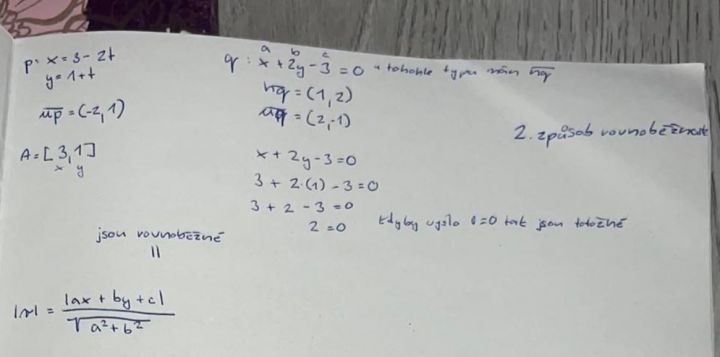 p: x = 3 - 2t
y = 1 + t
up = (-2, 1)
A = [3, 1]
x y
a b c
q: x + 2y - 3 = 0 z tohohle typu mám nq
nq = (1, 2)
uq = (2, -1)
2. způsob rovnoběžnost
x + 2y - 3 = 0
3 + 2·(1) - 3 = 0
3 + 2 - 3 = 0
2 = 0 kdyby vyšlo 0=0 tak jsou totožné
jsou rovnoběžné
||
|v| = |ax + by + c| / √a² + b²